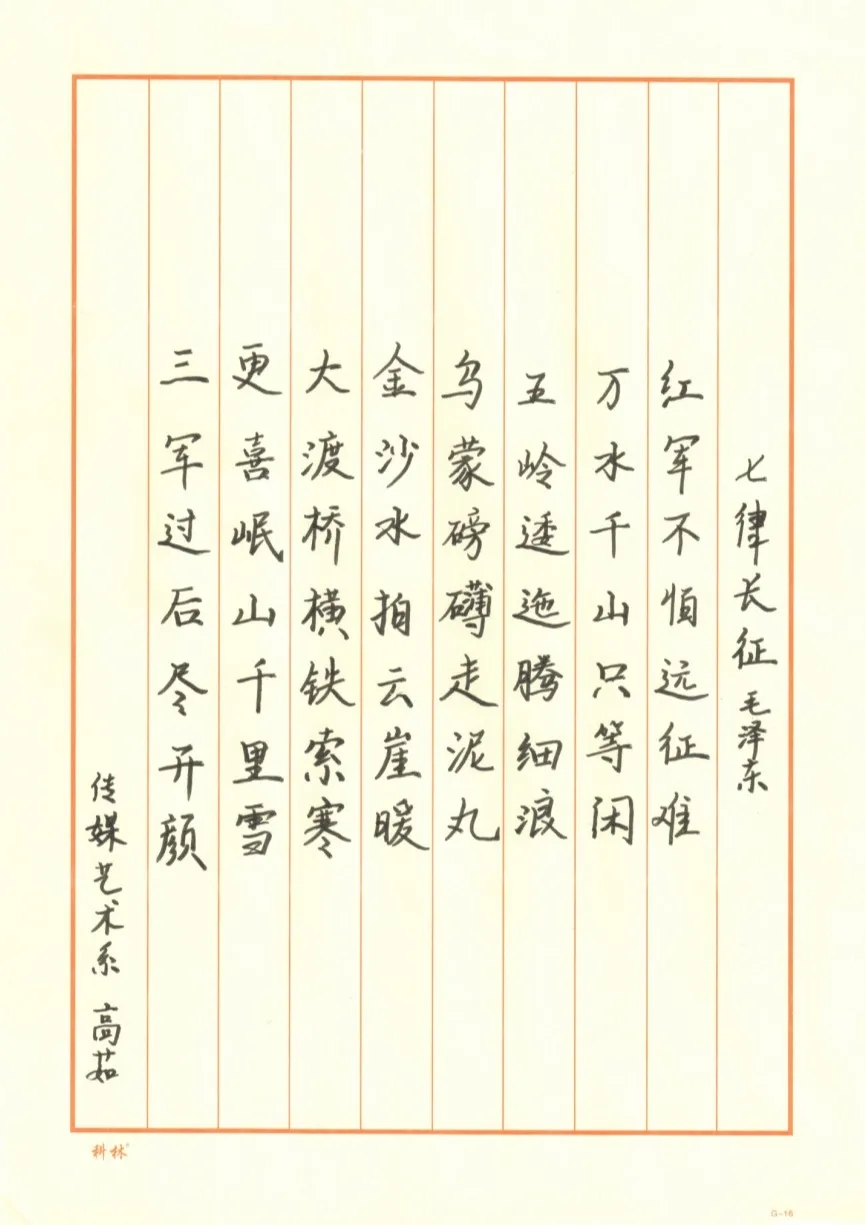 七律长征 毛泽东
红军不怕远征难
万水千山只等闲
五岭逶迤腾细浪
乌蒙磅礴走泥丸
金沙水拍云崖暖
大渡桥横铁索寒
更喜岷山千里雪
三军过后尽开颜
传媒艺术系 高茹
科林
G-16